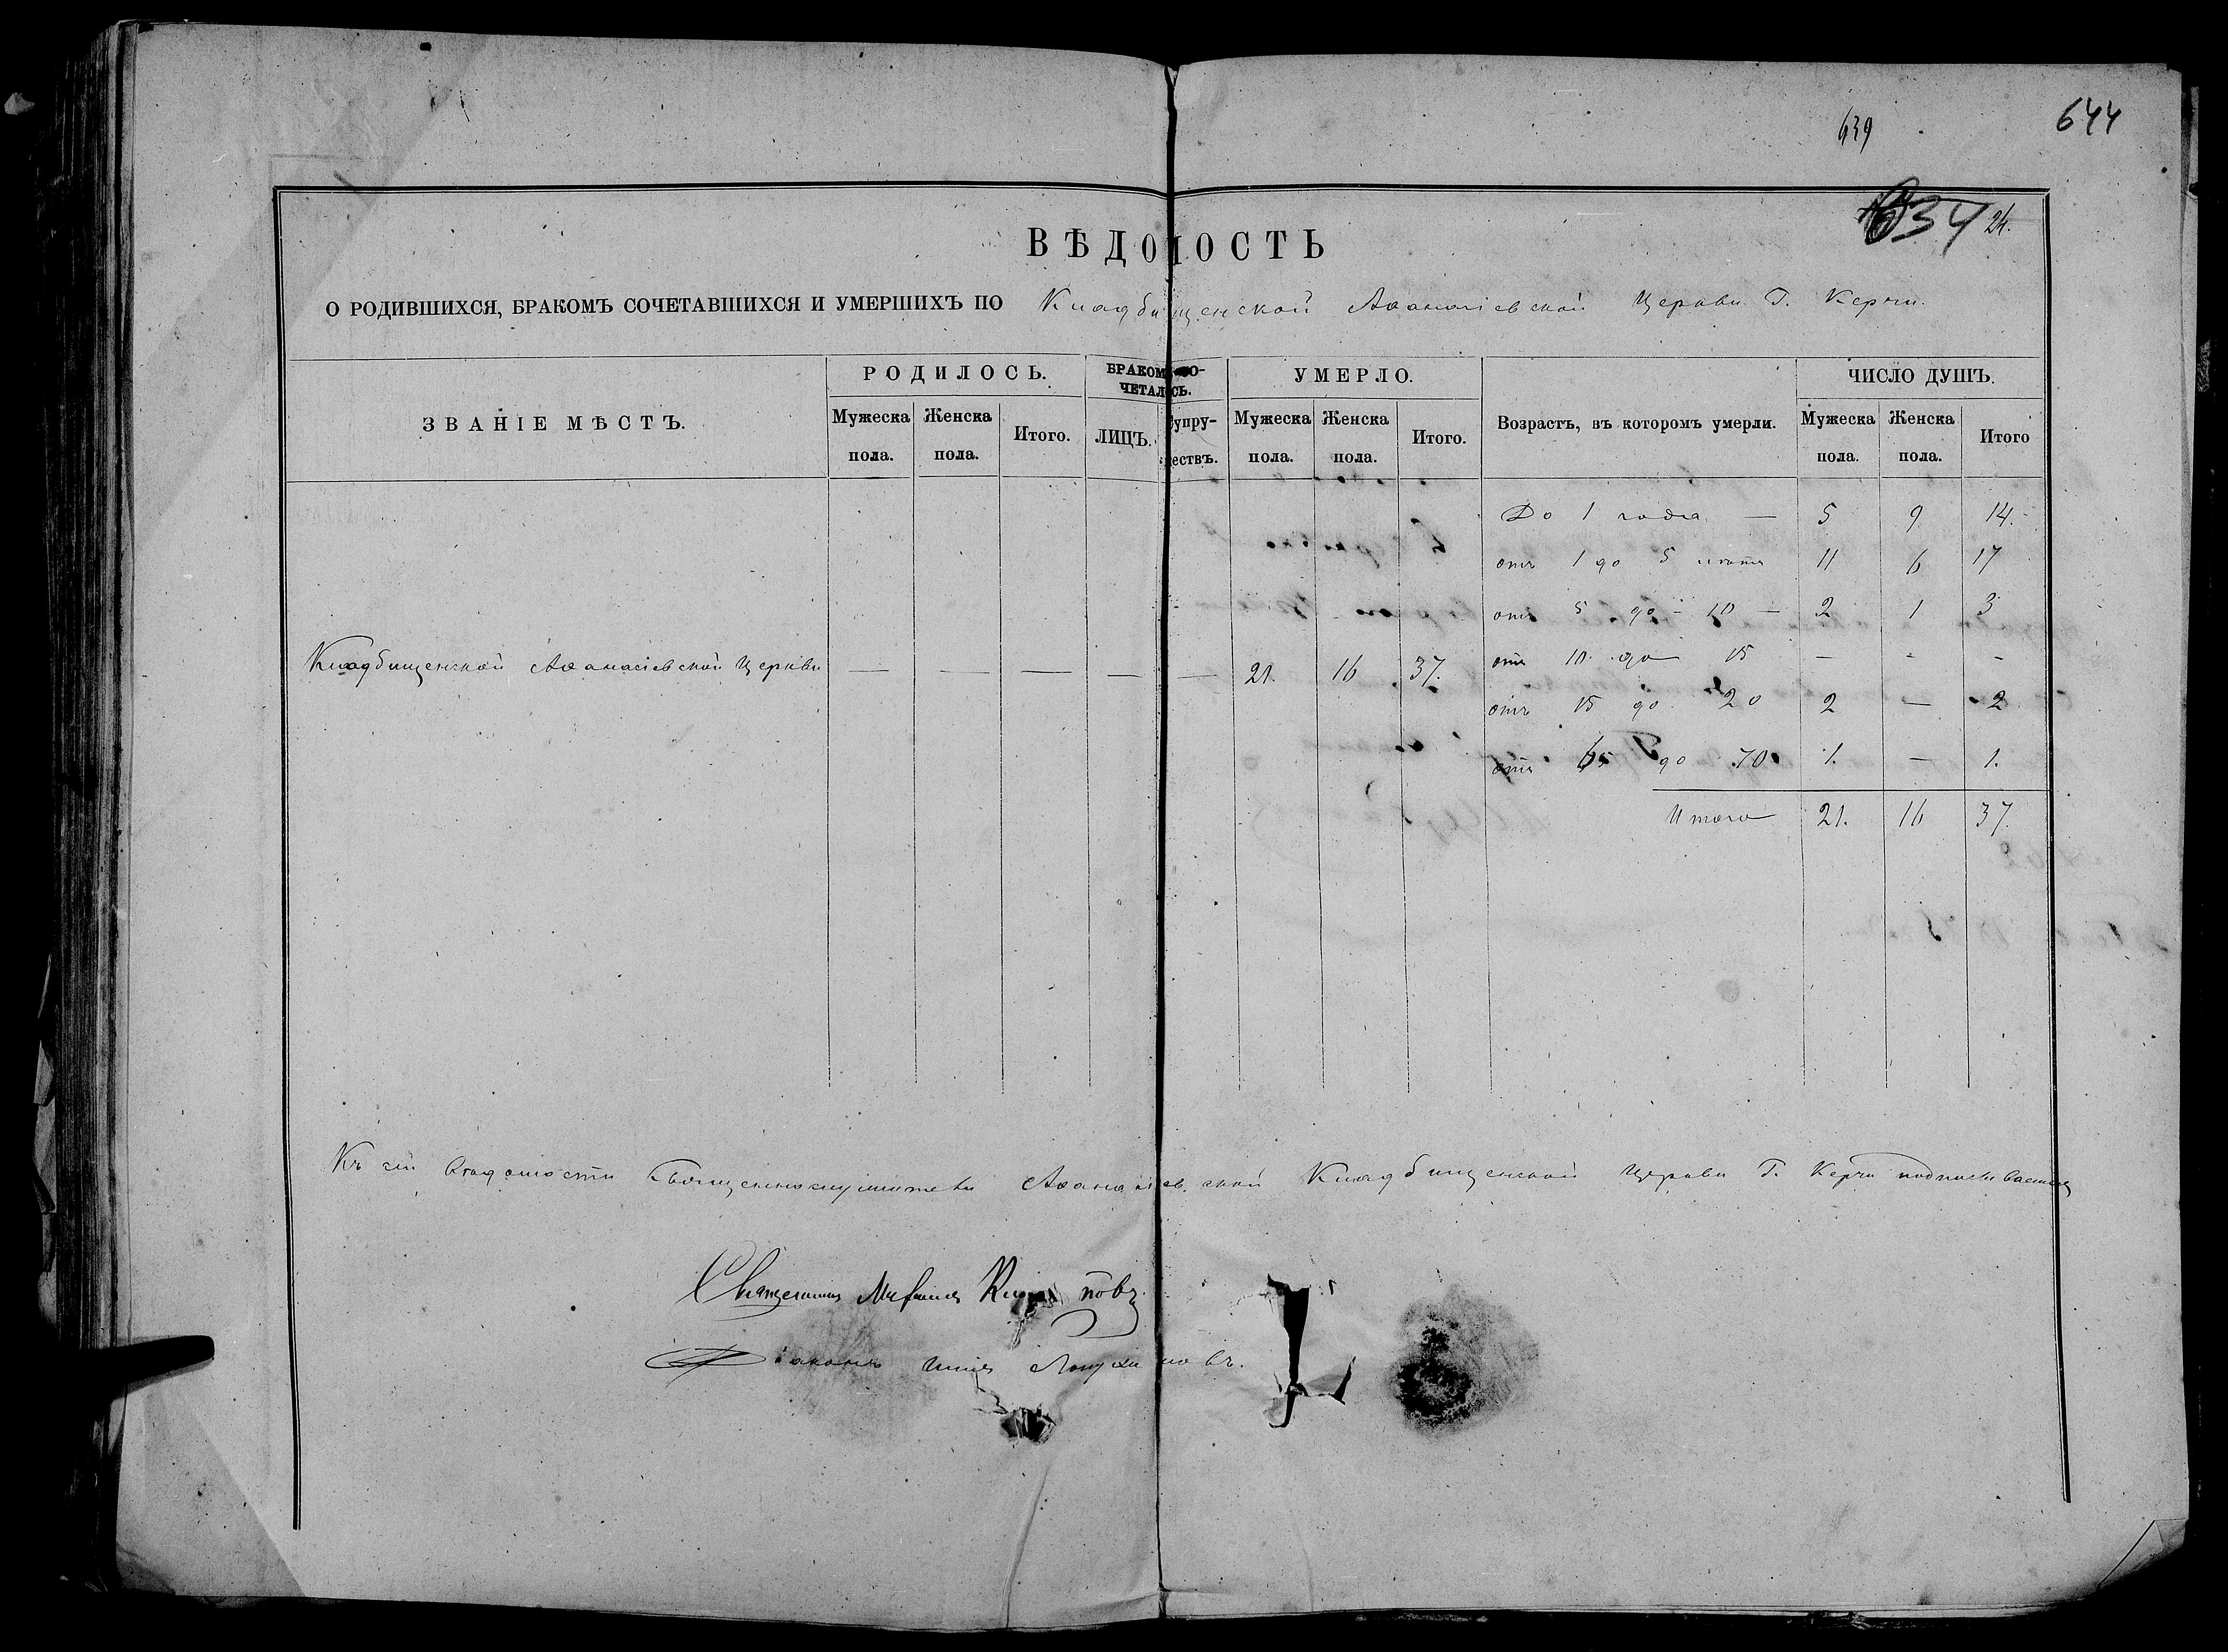 644
639
634 24.
ВѢДОМОСТЬ
О РОДИВШИХСЯ, БРАКОМЪ СОЧЕТАВШИХСЯ И УМЕРШИХЪ ПО Кладбищенской Аѳанасіевской Церкви Г. Керчи.
ЗВАНІЕ МѢСТЪ. РОДИЛОСЬ. БРАКОМЪ СО-ЧЕТАЛОСЬ. УМЕРЛО. Возрастъ, въ которомъ умерли. ЧИСЛО ДУШЪ.
Мужеска пола. Женска пола. Итого. ЛИЦЪ. Супружествъ. Мужеска пола. Женска пола. Итого. Мужеска пола. Женска пола. Итого
До 1 года — 5 9 14.
отъ 1 до 5 лѣтъ 11 6 17
отъ 5 до – 10 – 2 1 3
Кладбищенской Аѳанасіевской Церкви — — — — — 21. 16 37.
отъ 10 до 15 – - -
отъ 15 до 20 2 — 2
отъ 65 до 70 1. — 1.
Итого 21. 16 37.
Къ сей вѣдомости Священнослужители Аѳанасіевской Кладбищенской Церкви Г. Керчи подписываемся
Священникъ Михаилъ
Діаконъ Илія